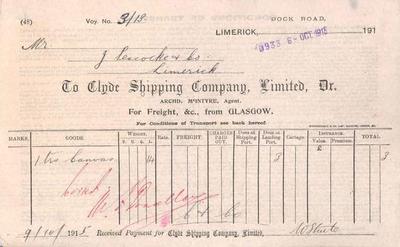 (48)
Voy. No. 3/18.
DOCK ROAD,
LIMERICK, 191
6- OCT 1915
Mr
J Leacocke & Co
Limerick
To Clyde Shipping Company, Limited, Dr.
ARCHD. McINTYRE, Agent.
For Freight, &c., from GLASGOW.
For Conditions of Transport see back hereof
MARKS. GOODS. WEIGHT. Rate. FREIGHT. CHARGES PAID OUT. Dues at Shipping Port. Dues at Landing Port. Cartage. INSURANCE. TOTAL.
T. C. Q. L. Value. Premium.
£
1 trs canvas 14 3 3
& Co
9/10/1915 Received Payment for Clyde Shipping Company, Limited,